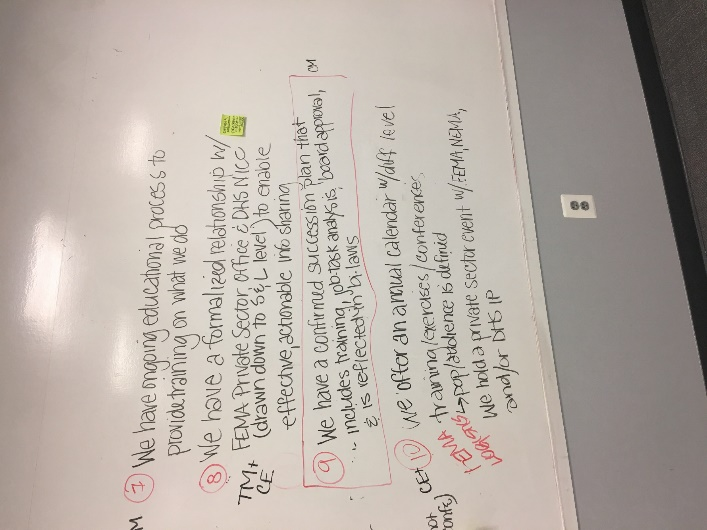 M ⑦ We have ongoing educational process to
provide training on what we do
⑧ We have a formalized relationship w/
TM+ FEMA Private Sector Office & DHS NICC
CE (drawn down to S & L level) to enable
effective, actionable info sharing
⑨ We have a confirmed succession plan that CM
includes training, job task analysis, board approval,
& is reflected in by-laws
CE+ ⑩ We offer an annual calendar w/diff level
training/exercises/conferences
↳ pop/audience is defined
We hold a private sector event w/FEMA, NEMA,
and/or DHS IP